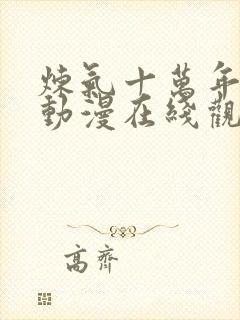 煉氣十萬年
動漫在綫觀
高齊